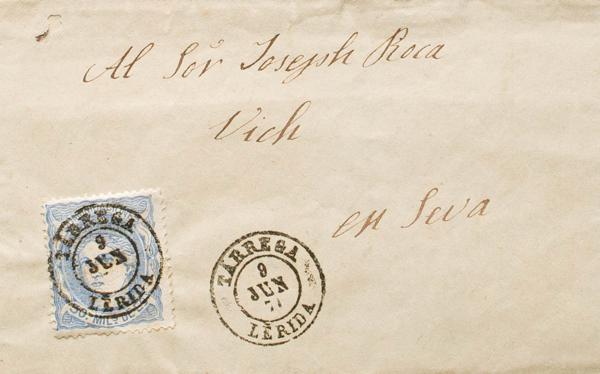 Al Sor Joseph Roca
Vich
en Seva
TÁRREGA
9
JUN
LÈRIDA
50. MILS DE
TÁRREGA
9
JUN
71
LÈRIDA